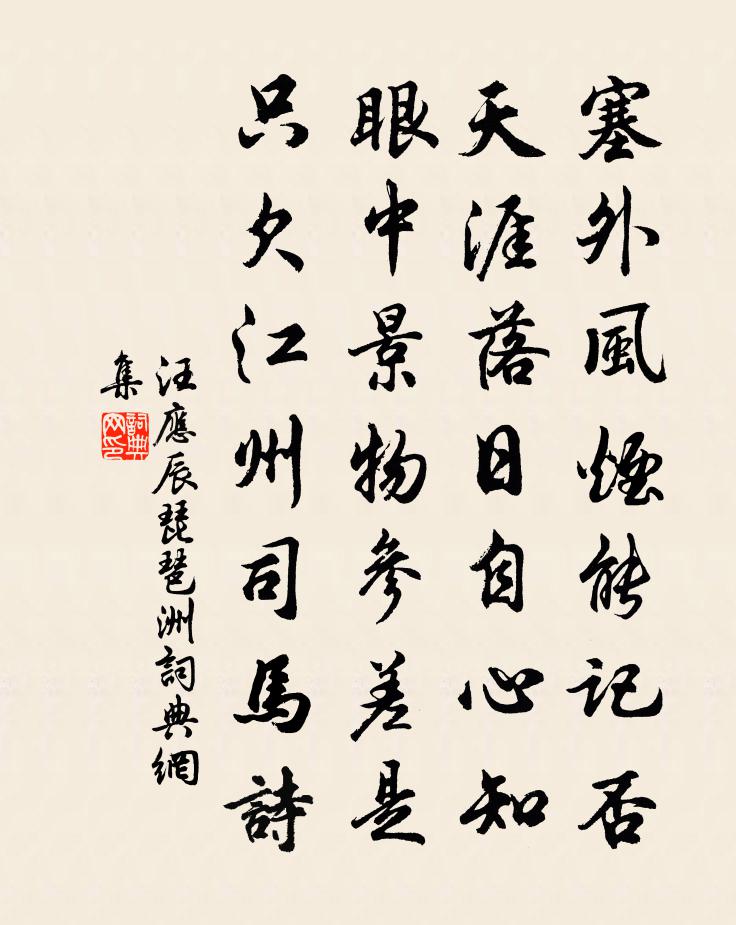 塞外風煙能記否
天涯落日自心知
眼中景物參差是
只欠江州司馬詩
汪應辰琵琶洲詞典網
集
詞典网印